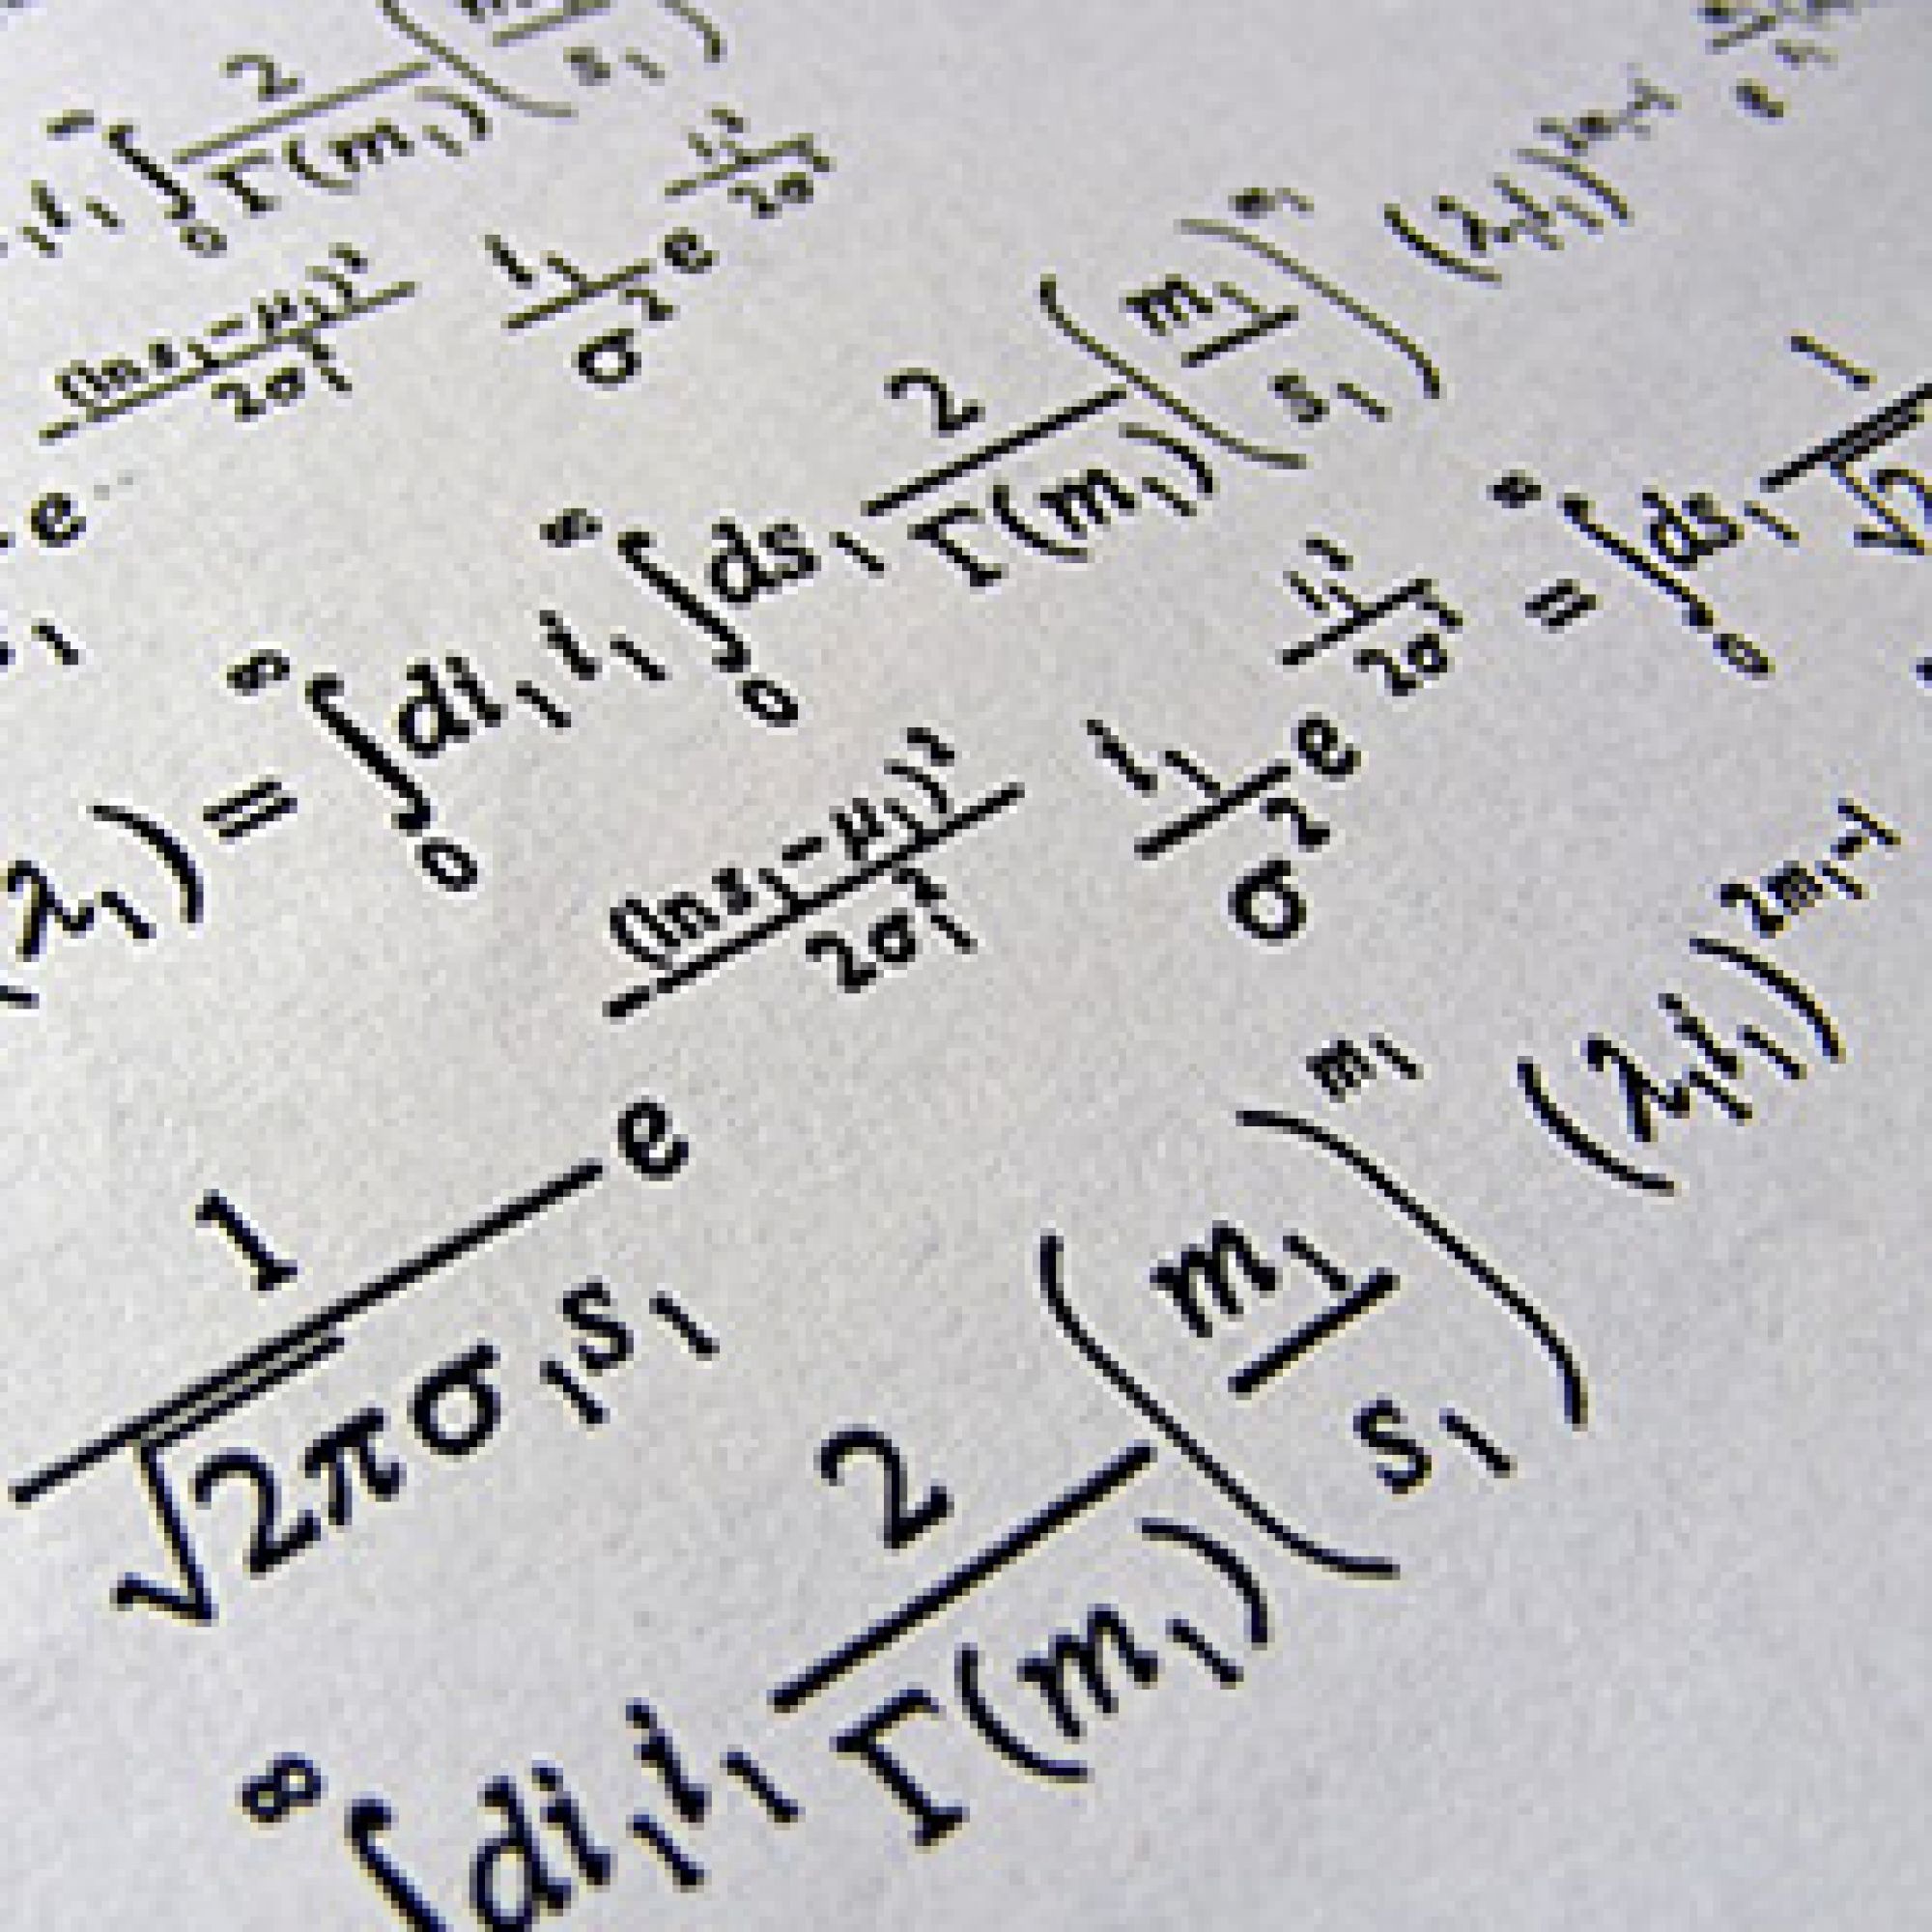 ∞∫0 2/Γ(m1) (m/s1)
(ln s1-μ1)²/2σ1² i1/σ² e i1²/2σ1²
e
λ1) = ∞∫0 di1 i1 ∞∫0 ds1 2/Γ(m1) (m1/s1)^m1 (λ1i1)^2m1-1
(ln s1-μ1)²/2σ1² i1/σ² e i1²/2σ1² = ∞∫0 ds1 1/√2
1/√2πσ1s1 e
∞∫ di1 i1 2/Γ(m1) (m1/s1)^m1 (λ1i1)^2m1-1